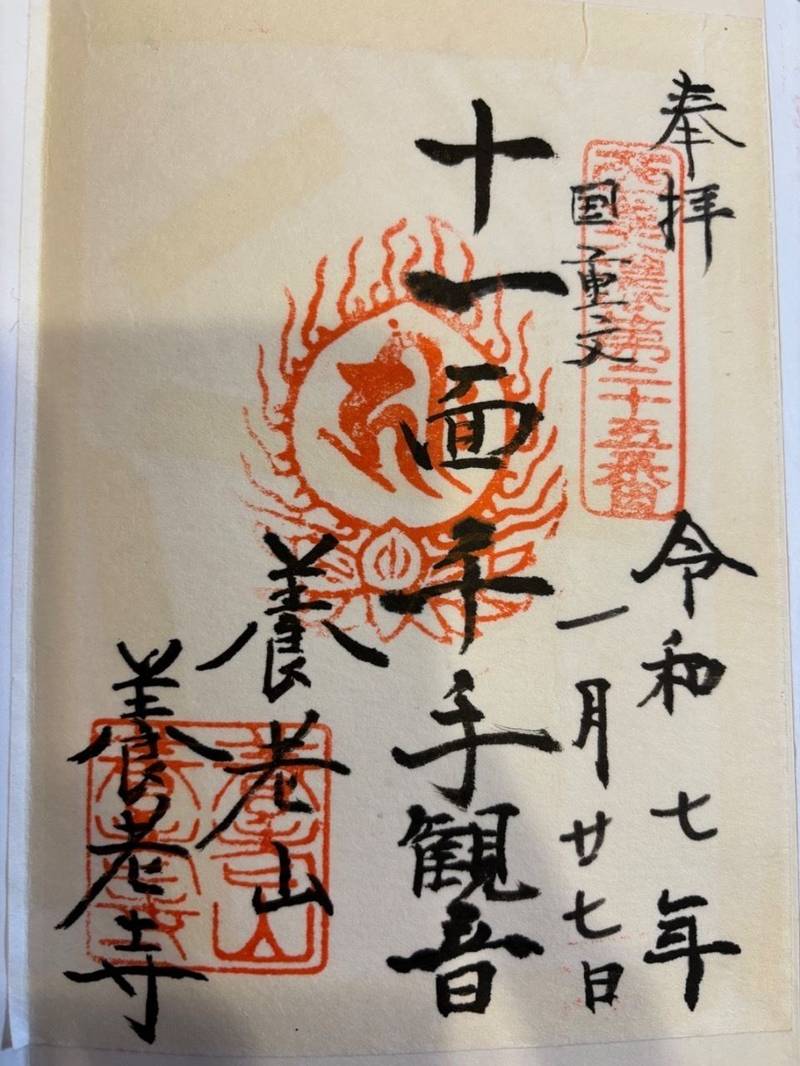 奉拝
令和七年
一月廿七日
西美濃第二十五番
国重文
十一面千手観音
養老山
養老寺